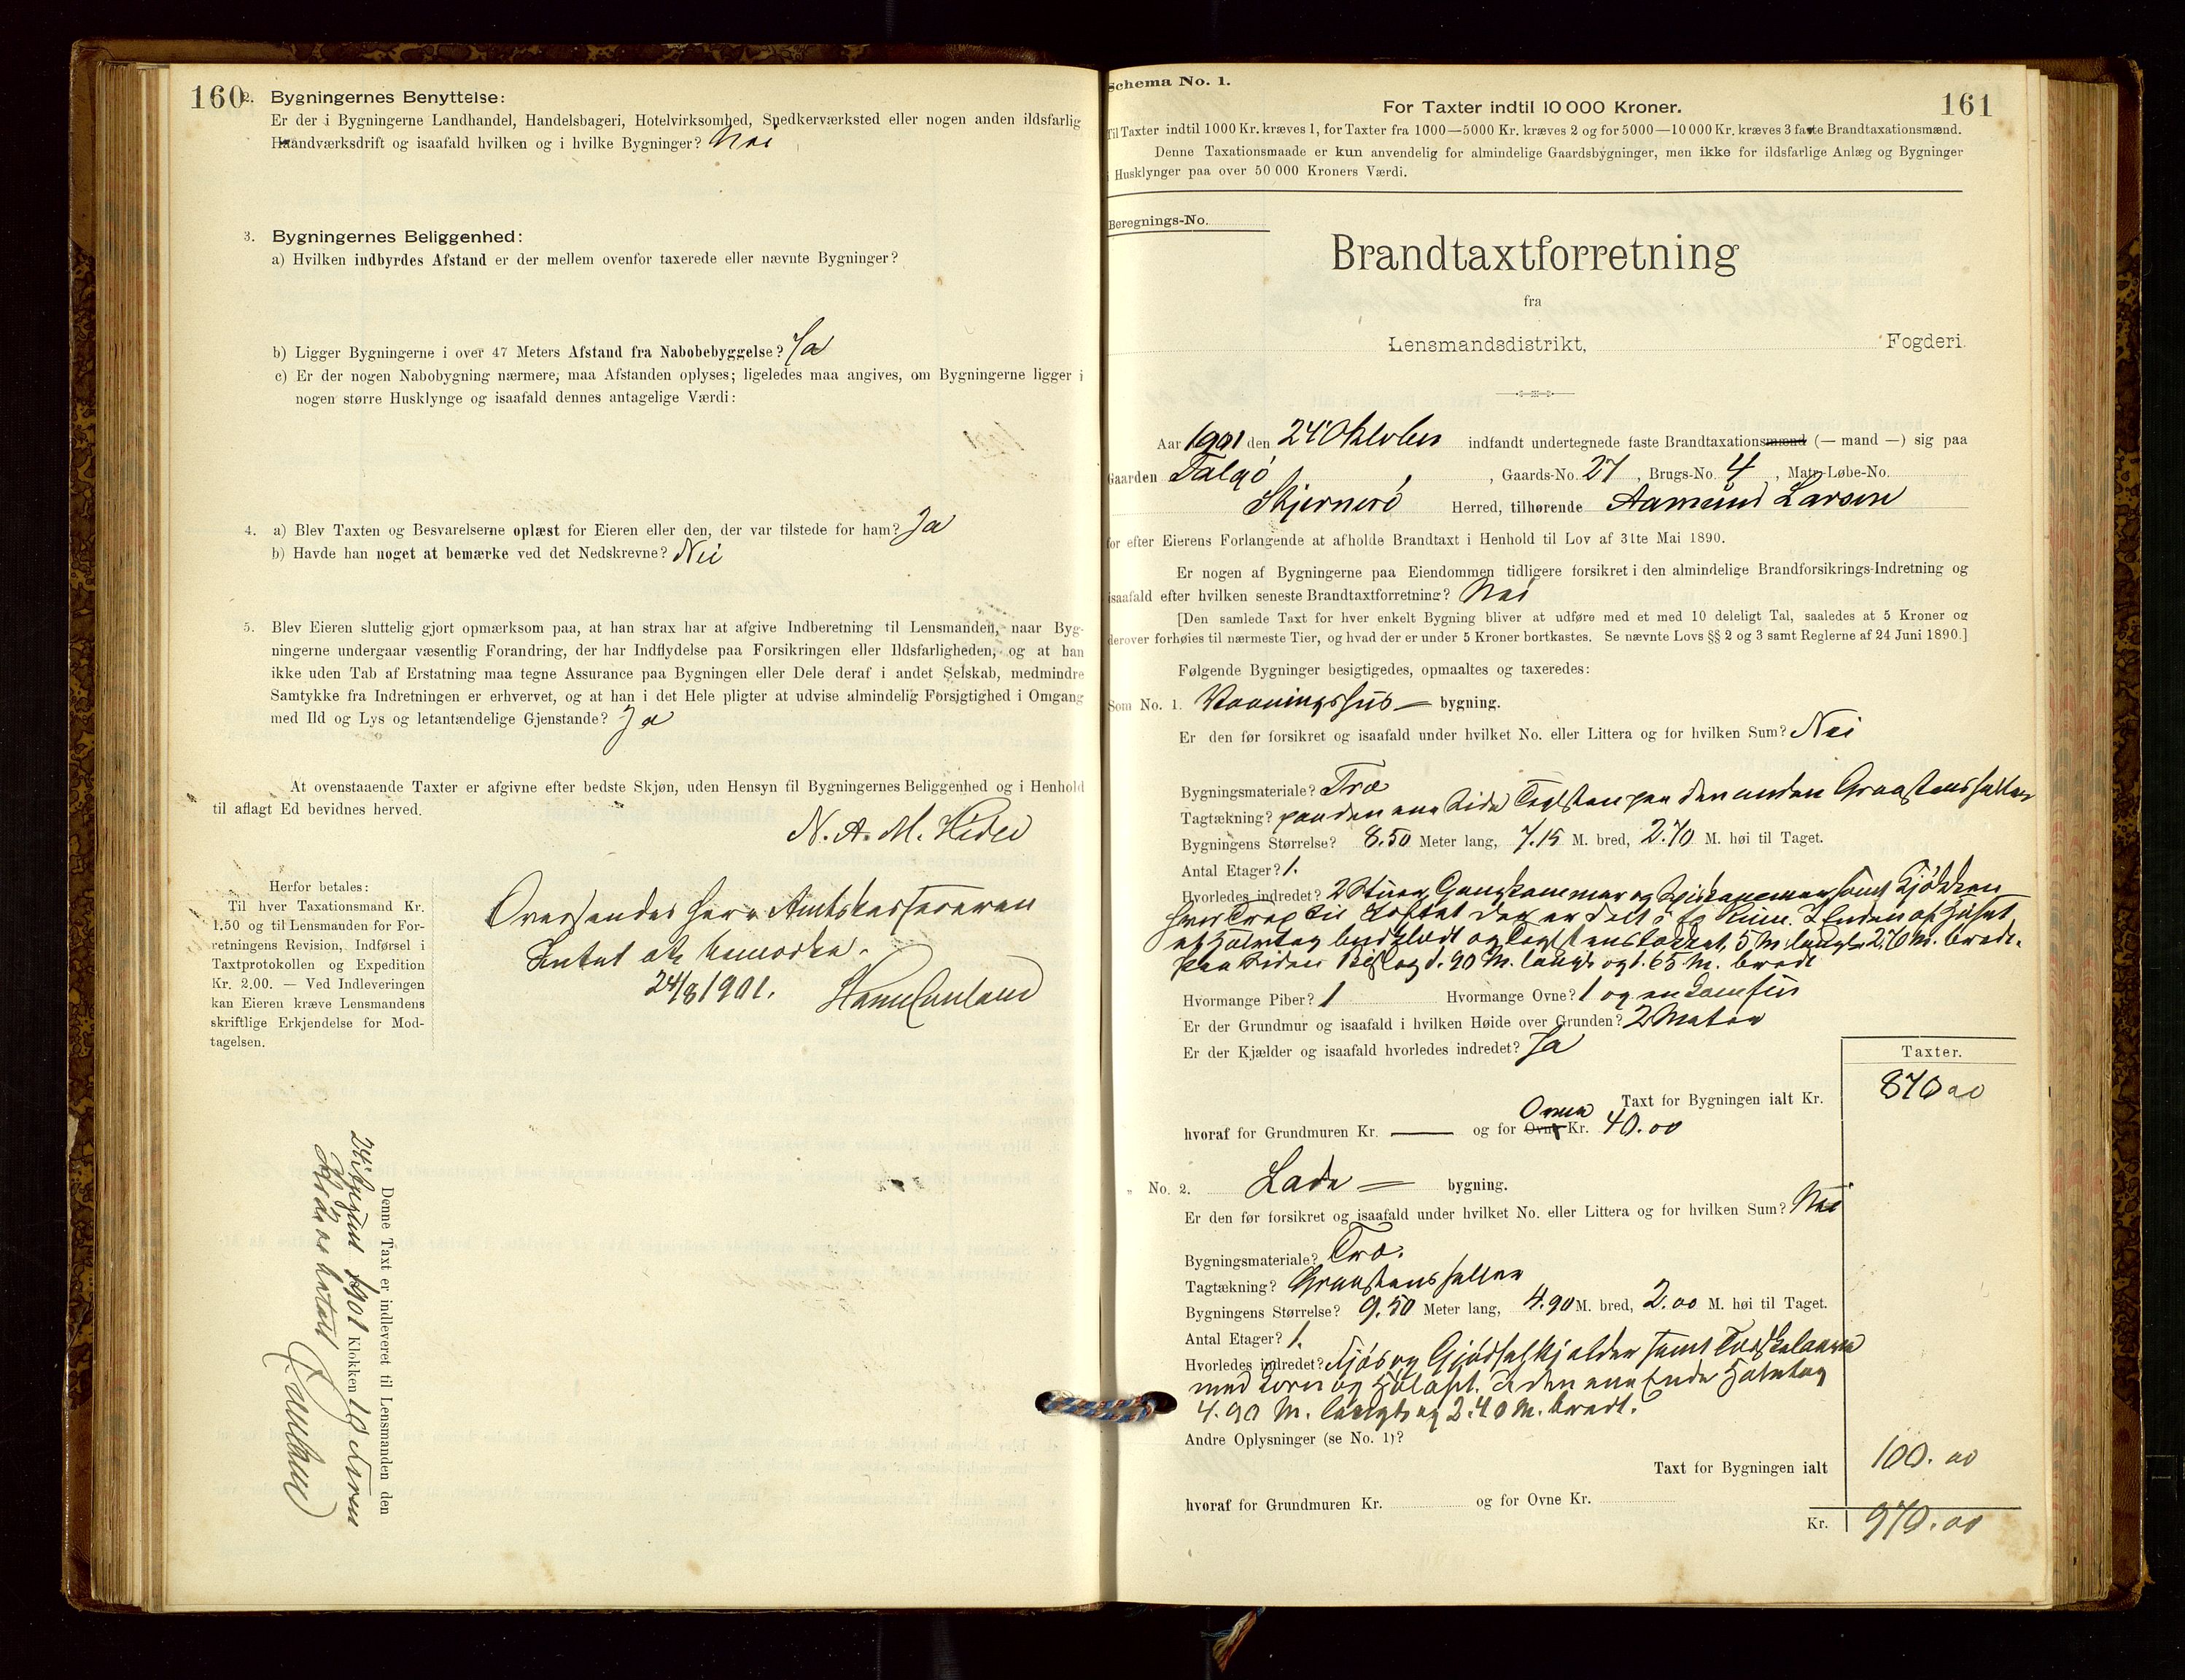 160
2. Bygningernes Benyttelse:
Er der i Bygningerne Landhandel, Handelsbageri, Hotelvirksomhed, Snedkerværksted eller nogen anden ildsfarlig
Haandværksdrift og isaafald hvilken og i hvilke Bygninger? Nei
3. Bygningernes Beliggenhed:
a) Hvilken indbyrdes Afstand er der mellem ovenfor taxerede eller nævnte Bygninger?
b) Ligger Bygningerne i over 47 Meters Afstand fra Nabobebyggelse? Ja
c) Er der nogen Nabobygning nærmere, maa Afstanden oplyses; ligeledes maa angives, om Bygningerne ligger i
nogen større Husklynge og isaafald dennes antagelige Værdi:
4. a) Blev Taxten og Besvarelserne oplæst for Eieren eller den, der var tilstede for ham? Ja
b) Havde han noget at bemærke ved det Nedskrevne? Nei
5. Blev Eieren sluttelig gjort opmærksom paa, at han strax har at afgive Indberetning til Lensmanden, naar Byg-
ningerne undergaar væsentlig Forandring, der har Indflydelse paa Forsikringen eller Ildsfarligheden, og at han
ikke uden Tab af Erstatning maa tegne Assurance paa Bygningen eller Dele deraf i andet Selskab, medmindre
Samtykke fra Indretningen er erhvervet, og at han i det Hele pligter at udvise almindelig Forsigtighed i Omgang
med Ild og Lys og letantændelige Gjenstande? Ja
At ovenstaaende Taxter er afgivne efter bedste Skjøn, uden Hensyn til Bygningernes Beliggenhed og i Henhold
til aflagt Ed bevidnes herved.
N. A. M.
Herfor betales:
Til hver Taxationsmand Kr.
1.50 og til Lensmanden for For-
retningens Revision, Indførsel i
Taxtprotokollen og Expedition
Kr. 2,00. — Ved Indleveringen
kan Eieren kræve Lensmandens
skriftlige Erkjendelse for Mod-
tagelsen.
Oversendes Herr Amtskassereren
Intet at bemærke.
24/8 1901.
Denne Taxt er indleveret til Lensmanden den
24 August 1901 Klokken 10
betalt
Schema No. 1.
161
For Taxter indtil 10 000 Kroner.
Til Taxter indtil 1000 Kr. kræves 1, for Taxter fra 1000—5000 Kr. kræves 2 og for 5000—10 000 Kr. kræves 3 faste Brandtaxationsmænd.
Denne Taxationsmaade er kun anvendelig for almindelige Gaardsbygninger, men ikke for ildsfarlige Anlæg og Bygninger
i Husklynger paa over 50 000 Kroners Værdi.
Beregnings-No.
Brandtaxtforretning
fra
Lensmandsdistrikt, Fogderi.
Aar 1901 den 24 Oktober indfandt undertegnede faste Brandtaxationsmænd (— mand —) sig paa
Gaarden Talgö, Gaards-No. 27, Brugs-No. 4, Matr.-Løbe-No.
Skjernerö Herred, tilhørende Aamund Larsen
for efter Eierens Forlangende at afholde Brandtaxt i Henhold til Lov af 31te Mai 1890.
Er nogen af Bygningerne paa Eiendommen tidligere forsikret i den almindelige Brandforsikrings-Indretning og
isaafald efter hvilken seneste Brandtaxtforretning? Nei
[Den samlede Taxt for hver enkelt Bygning bliver at udføre med et med 10 deleligt Tal, saaledes at 5 Kroner og
derover forhøies til nærmeste Tier, og hvad der er under 5 Kroner bortkastes. Se nævnte Lovs §§ 2 og 3 samt Reglerne af 24 Juni 1890.]
Følgende Bygninger besigtigedes, opmaaltes og taxeredes:
Som No. 1. Vaaningshus — bygning.
Er den før forsikret og isaafald under hvilket No. eller Littera og for hvilken Sum? Nei
Bygningsmateriale? Træ
Tagtækning? paa den ene Side Teglsten paa den anden Graastensheller
Bygningens Størrelse? 8.50 Meter lang, 7.15 M. bred, 2.70 M. høi til Taget.
Antal Etager? 1.
Hvorledes indredet? 2 Stuer, Gang, kammer og Spiskammer samt Kjökken
hvor Trap til Loftet der er delt i Rum. I Enden af Huset
et Halvtag bordklædt og Teglstenstækket, 5 M. langt 2.70 M. bredt.
paa Siden 1. 90 M. langt og 1.65 M. bredt
Hvormange Piber? 1 Hvormange Ovne? 1 og en komfur
Er der Grundmur og isaafald i hvilken Høide over Grunden? 2 Meter
Er der Kjælder og isaafald hvorledes indredet? Ja
Taxter.
Taxt for Bygningen ialt Kr. 870 00
hvoraf for Grundmuren Kr. — og for Ovne Ovne Kr. 40.00
" No. 2. Lade — bygning.
Er den før forsikret og isaafald under hvilket No. eller Littera og for hvilken Sum? Nei
Bygningsmateriale? Træ.
Tagtækning? Graastensheller
Bygningens Størrelse? 9.50 Meter lang, 4.90 M. bred, 2.00 M. høi til Taget.
Antal Etager? 1.
Hvorledes indredet? Fjös og Gjödselkjelder samt Tærskelaave
med Korn og Höloft. I den ene Ende Halvtag
4.90 M. langt og 2.40 M. bredt.
Andre Oplysninger (se No. 1)?
Taxt for Bygningen ialt 100. 00
hvoraf for Grundmuren Kr. og for Ovne Kr.
Kr. 970.00